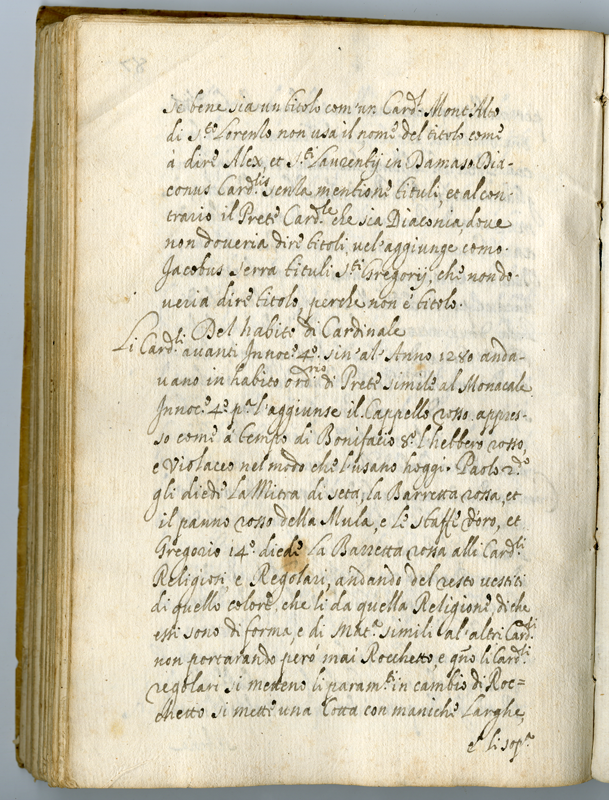 se bene sia un titolo com'un Card.l Mont'Alto
di S.to Lorenzo non usa il nome del titolo come
a dire Alex. et S.ti Laurentij in Damaso Dia-
conus Card.lis senza mentione tituli, et al con-
trario il Prete Card.le che sia Diaconia dove
non doveria dire titoli, vel'aggiunge como
Jacobus Serra tituli S.ti Gregorij, che non do-
veria dire titolo, perche non é titolo.
Del habito di Cardinale
Li Card.li avanti Innoc.o 4.o sin'al'Anno 1280 anda-
vano in habito ord.rio di Prete simile al Monacale
Innoc.o 4.o p.a l'aggiunse il Cappello rosso, appres-
so come à tempo di Bonifacio 8.o l'hebbero rosso,
e Violaceo nel modo che l'usano hoggi. Paolo 2.do
gli diede La Mitra di seta, la Barretta rossa, et
il panno rosso della Mula, e le staffe d'oro, et
Gregorio 14.o diede la Barretta rossa alli Card.li
Religiosi, e Regolari, andando del resto vestiti
di quello colore, che li da quella Religione, di che
essi sono di forma, e di Mat.a simili al'altri Card.li
non portarando però mai Rocchetto, e qn̄o li Card.li
regolari si metteno li param.ti in cambio di Roc=
chetto si mette una Cotta con maniche Larghe,
e' li sop.a